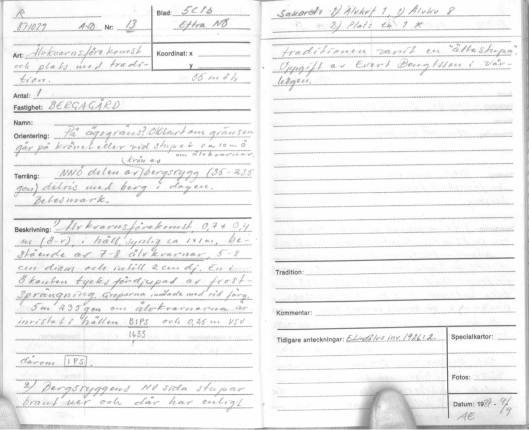 R
871029 A-D Nr: 13
Blad: 5C1b
Eftra NÖ
Art: Älvkvarnsförekomst
och plats med tradi-
tion.
Koordinat: x
y
35 möh
Antal: 1
Fastighet: BERGAGÅRD
Namn:
Orientering: På ägogräns? Oklart om gränsen
går på krönet eller vid stupet
om älvkvarnar.
krön av
Terräng: NNÖ delen av bergsrygg (35-235
gon) delvis med berg i dagen.
Betesmark.
Beskrivning: 1) Älvkvarnsförekomst, 0,7 x 0,4
m (Ö-V), i häll, synlig ca 1x1 m, be-
stående av 7-8 älvkvarnar, 5-8
cm diam och intill 2 cm dj. En i
Ö kanten tycks fördjupad av frost-
sprängning. Groparna imålade med röd färg.
5 m 235 gon om älvkvarnarna är
inristat i hällen BIPS och 0,25 m VSV
1633
därom IPS.
2) Bergsryggens NÖ sida stupar
brant ner och där har enligt
Sakord: 1) Älvkvf 1, 1) Älvkv 8
2) Plats m t x
traditionen varit en "ättestupa"
Uppgift av Evert Bengtsson i Vär-
högen.
Tradition:
Kommentar:
Tidigare anteckningar: inv. 1986:2.
Specialkartor:
Fotos:
Datum: 1987- 9/9
AE